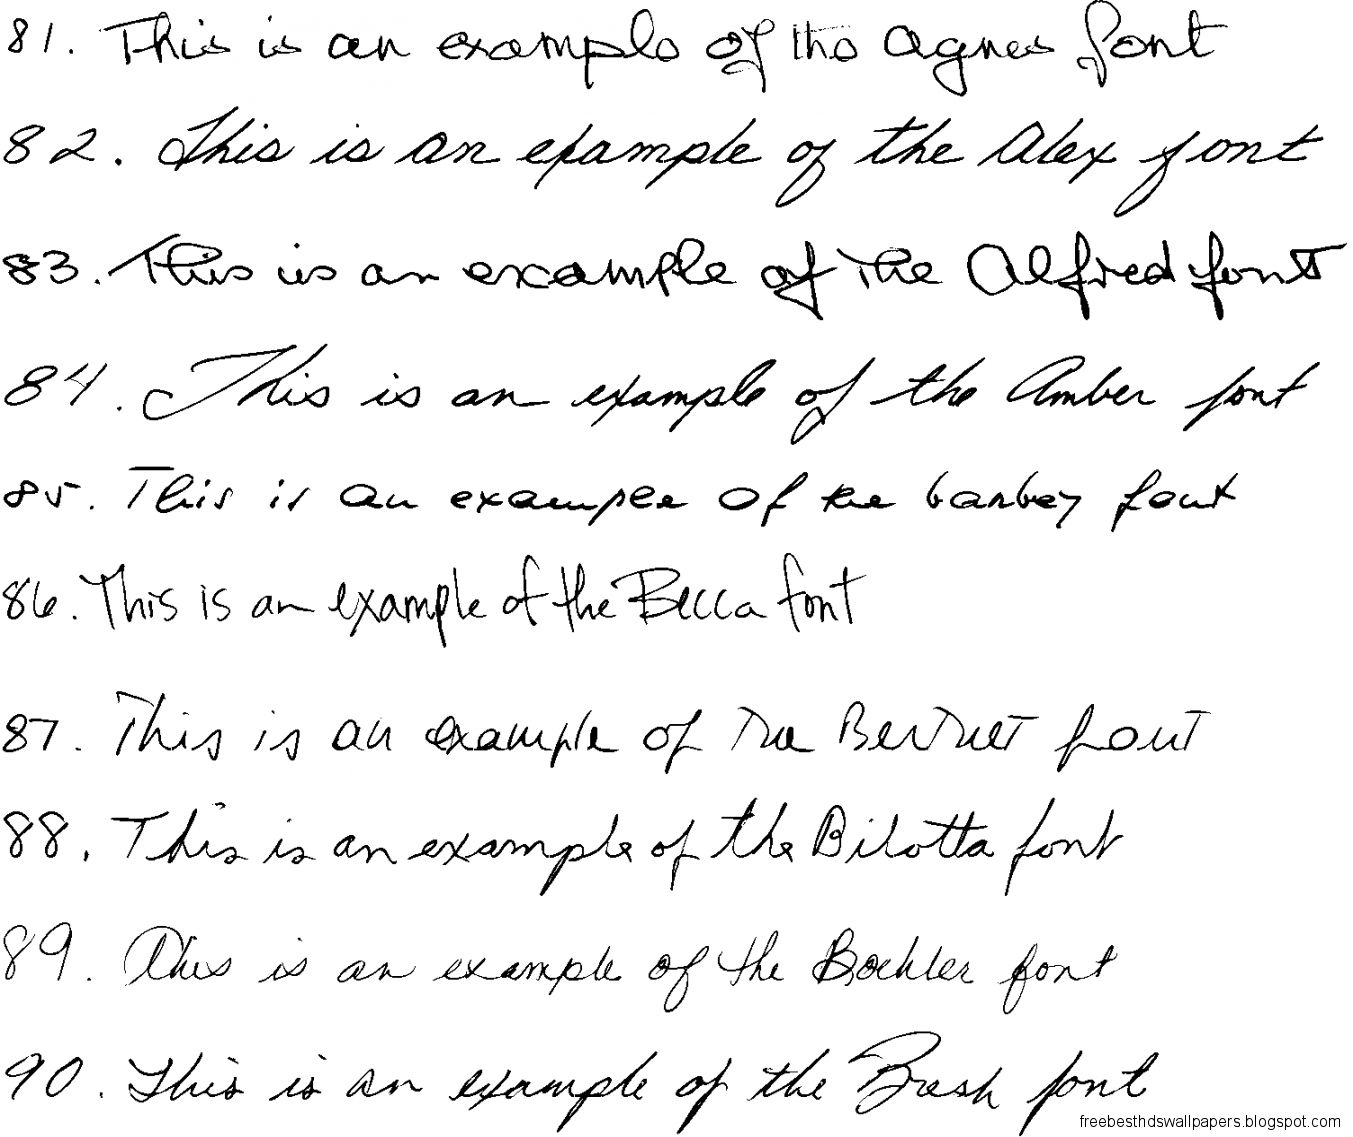 81. This is an example of the Agnes font
82. This is an example of the Alex font
83. This is an example of the Alfred font
84. This is an example of the Amber font
85. This is an example of the barbey font
86. This is an example of the Becca font
87. This is an example of the Bernet font
88. This is an example of the Bilotta font
89. This is an example of the Boehler font
90. This is an example of the Brash font
freebesthdswallpapers.blogspot.com